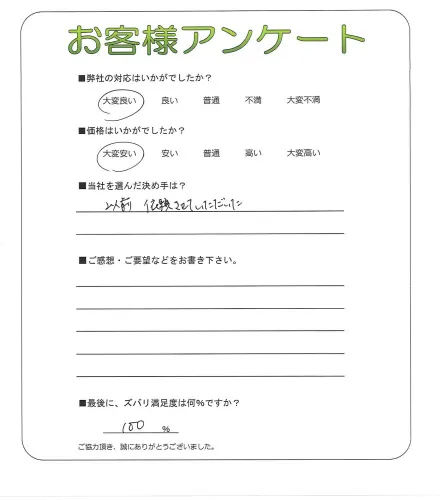 お客様アンケート
■弊社の対応はいかがでしたか？
大変良い 良い 普通 不満 大変不満
■価格はいかがでしたか？
大変安い 安い 普通 高い 大変高い
■当社を選んだ決め手は？
以前 依頼させていただいた
■ご感想・ご要望などをお書き下さい。
■最後に、ズバリ満足度は何%ですか？
100 %
ご協力頂き、誠にありがとうございました。